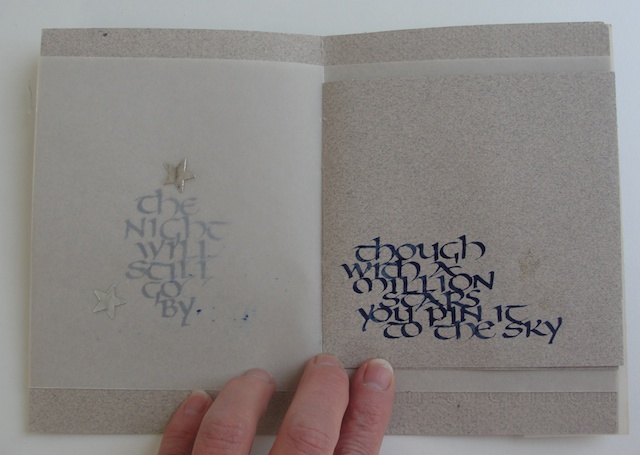 the
night
will
still
go
by
though
with a
million
stars
you pin it
to the sky